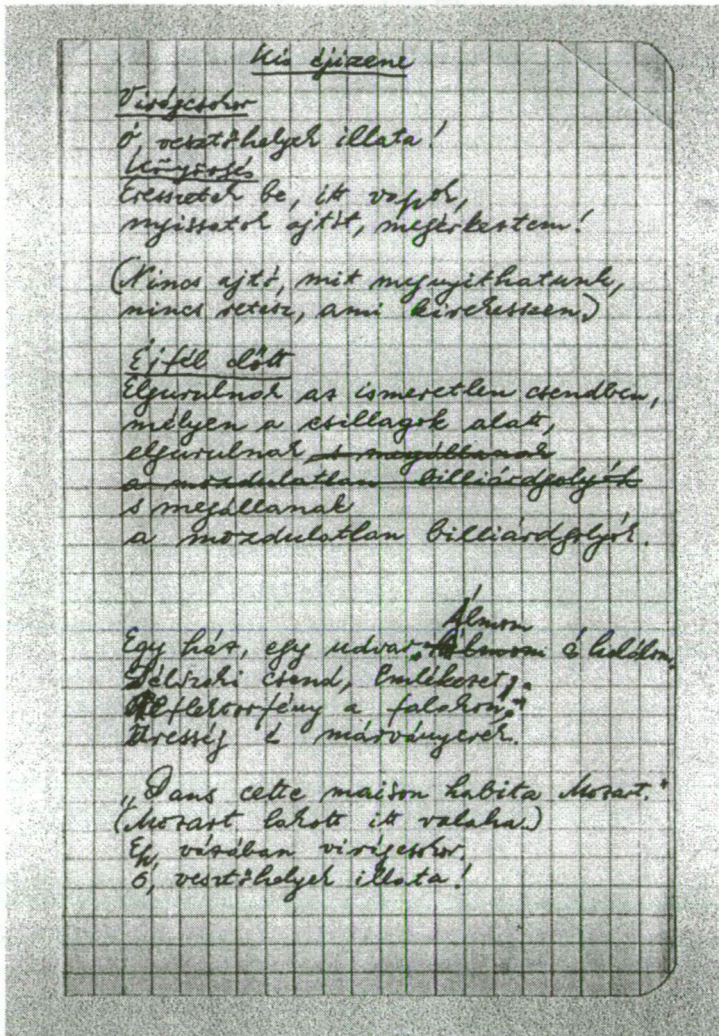 Kis éjizene
Virágcsokor
Ó, vesztőhelyek illata!
Könyörgés
Eresszetek be, itt vagyok,
nyissatok ajtót, megérkeztem!
(Nincs ajtó, mit megnyithatunk,
nincs retesz, ami kirekesszen.)
Éjfél előtt
Elgurulnak az ismeretlen csendben,
mélyen a csillagok alatt,
elgurulnak s megállanak
a mozdulatlan billiárdgolyók
s megállanak
a mozdulatlan billiárdgolyók.
Álmom
Egy ház, egy udvar, álmom és halálom.
Éjszaki csend, Emlékezet,
Reflektorfény a falakon,
Üresség és márványerek.
„Dans cette maison habita Mozart."
(Mozart lakott itt valaha.)
Egy vázában virágcsokor.
Ó, vesztőhelyek illata!